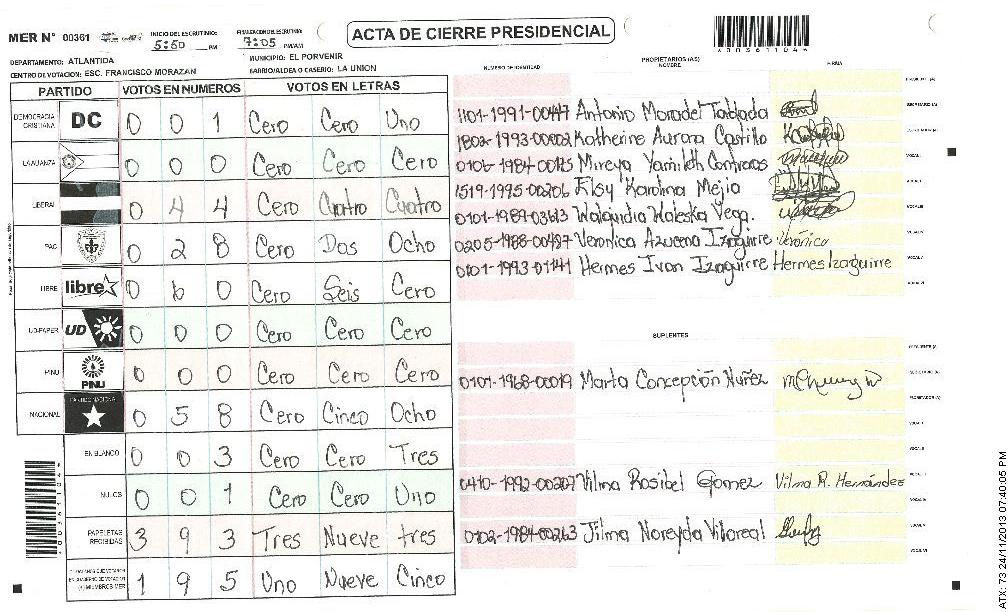 MER N° 00361
INICIO DEL ESCRUTINIO:
5:50 PM
FINALIZACION DEL ESCRUTINIO:
7:05 PM/AM
ACTA DE CIERRE PRESIDENCIAL
DEPARTAMENTO: ATLANTIDA
MUNICIPIO: EL PORVENIR
CENTRO DE VOTACION: ESC. FRANCISCO MORAZAN
BARRIO/ALDEA O CASERIO: LA UNION
PARTIDO VOTOS EN NUMEROS VOTOS EN LETRAS
DEMOCRACIA CRISTIANA DC 0 0 1 Cero Cero Uno
LA ALIANZA 0 0 0 Cero Cero Cero
LIBERAL 0 4 4 Cero Cuatro Cuatro
PAC 0 2 8 Cero Dos Ocho
LIBRE libre 0 6 0 Cero Seis Cero
UD-FAPER UD 0 0 0 Cero Cero Cero
PINU PINU 0 0 0 Cero Cero Cero
NACIONAL PARTIDO NACIONAL 0 5 8 Cero Cinco Ocho
EN BLANCO 0 0 3 Cero Cero Tres
NULOS 0 0 1 Cero Cero Uno
PAPELETAS RECIBIDAS 3 9 3 Tres Nueve tres
1 9 5 Uno Nueve Cinco
NUMERO DE IDENTIDAD
PROPIETARIOS (AS)
NOMBRE
FIRMA
1101-1991-00447 Antonio Moradel Tablada
1802-1993-00002 Katherine Aurora Castillo
0106-1984-00125 Mireya Yamileth Contreras
1519-1995-00206 Elsy Karolina Mejia
0101-1989-03613 Walquidia Waleska Vega.
0205-1988-00497 Veronica Azucena Izaguirre Verónica
0101-1993-01141 Hermes Ivan Izaguirre Hermes Izaguirre
SUPLENTES
0101-1968-00019 Marta Concepción Nuñez
0410-1992-00207 Vilma Rosibel Gomez Vilma R. Hernández
0102-1984-00263 Jilma Noreyda Villoreal
ATX: 73 24/11/2013 07:40:05 PM